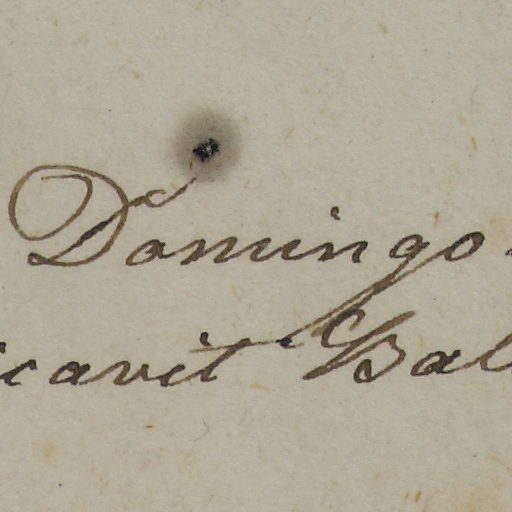 Domingo.
icavit Bal